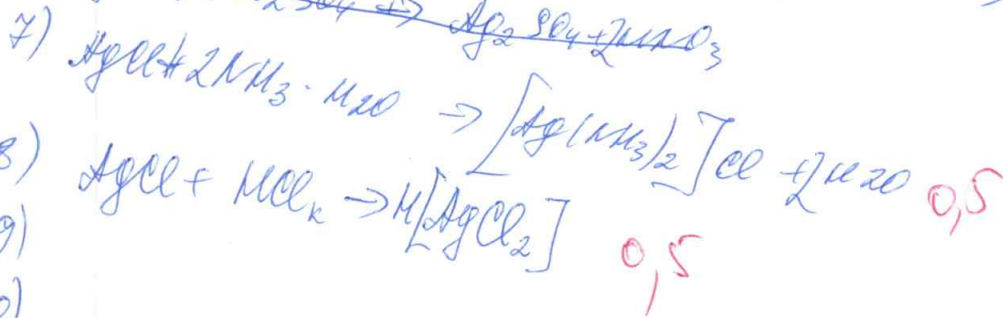 SO4 → Ag2SO4 + 2HNO3
7) AgCl + 2NH3 · H2O → [Ag(NH3)2]Cl + 2H2O 0,5
8) AgCl + HClк → H[AgCl2] 0,5
9)